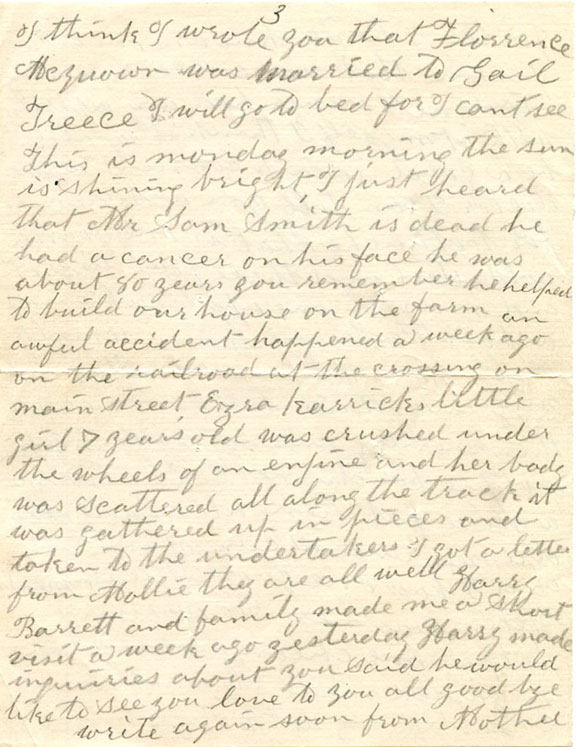 3
I think I wrote you that Florrence
Mcquown was married to Gail
Treece I will go to bed for I cant see
This is monday morning the sun
is shining bright, I just heard
that Mr Sam Smith is dead he
had a cancer on his face he was
about 80 years you remember he helped
to build our house on the farm an
awful accident happened a week ago
on the railroad at the crossing on
main street Ezra Karricks little
girl 7 years old was crushed under
the wheels of an engine and her body
was scattered all along the track it
was gathered up in pieces and
token to the undertakers I got a letter
from Mollie they are all well Harry
Barrett and family made me a short
visit a week ago yesterday Harry made
inquiries about you said he would
like to see you love to you all good bye
write again soon from Mother